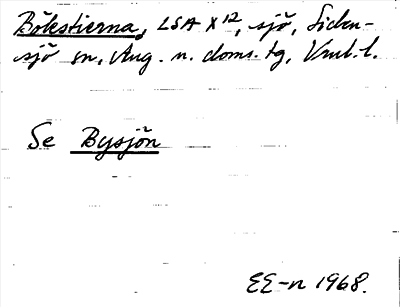 Bölestierna, LSA X 12, sjö, Siden-
sjö sn, Ång. n. doms. tg, Vnl. l.
Se Bysjön
EE-n 1968.